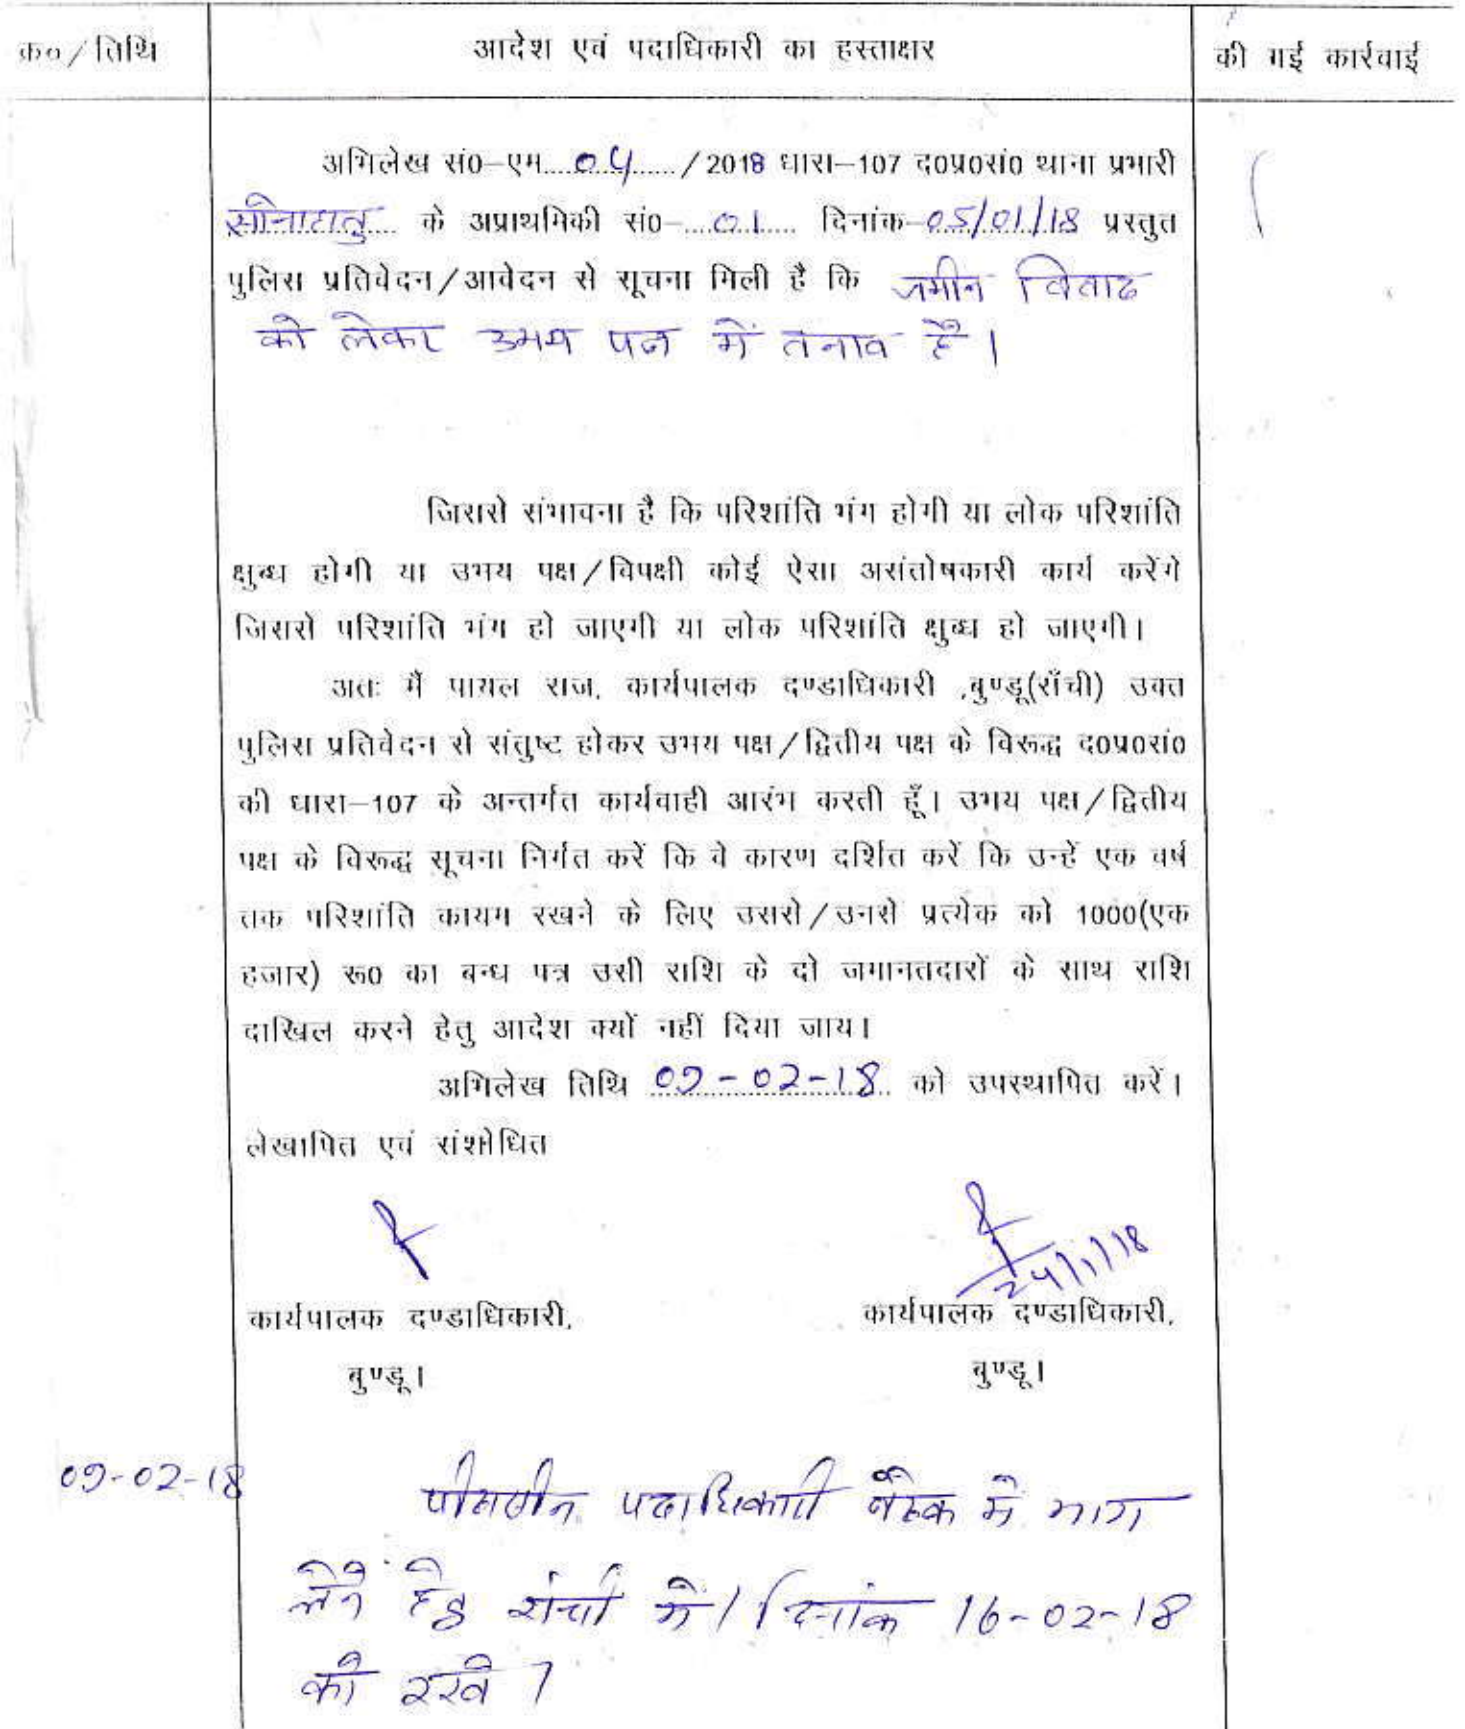 क्र०/तिथि
आदेश एवं पदाधिकारी का हस्ताक्षर
की गई कार्रवाई
अभिलेख सं0–एम....04...../2018 धारा–107 द0प्र0सं0 थाना प्रभारी
सोनाहातु.... के अप्राथमिकी सं0–....01..... दिनांक–05/01/18 प्रस्तुत
पुलिस प्रतिवेदन/आवेदन से सूचना मिली है कि जमीन विवाद
को लेकर उभय पक्ष में तनाव है।
जिससे संभावना है कि परिशांति भंग होगी या लोक परिशांति
क्षुब्ध होगी या उभय पक्ष/विपक्षी कोई ऐसा असंतोषकारी कार्य करेंगे
जिससे परिशांति भंग हो जाएगी या लोक परिशांति क्षुब्ध हो जाएगी।
अतः मैं पायल राज, कार्यपालक दण्डाधिकारी ,बुण्डू(राँची) उक्त
पुलिस प्रतिवेदन से संतुष्ट होकर उभय पक्ष/द्वितीय पक्ष के विरूद्ध द0प्र0सं0
की धारा–107 के अन्तर्गत कार्यवाही आरंभ करती हूँ। उभय पक्ष/द्वितीय
पक्ष के विरूद्ध सूचना निर्गत करें कि वे कारण दर्शित करें कि उन्हें एक वर्ष
तक परिशांति कायम रखने के लिए उससे/उनसे प्रत्येक को 1000(एक
हजार) रू0 का बन्ध पत्र उसी राशि के दो जमानतदारों के साथ राशि
दाखिल करने हेतु आदेश क्यों नहीं दिया जाय।
अभिलेख तिथि 09-02-18 को उपस्थापित करें।
लेखापित एवं संशोधित
24/1/18
कार्यपालक दण्डाधिकारी,
कार्यपालक दण्डाधिकारी,
बुण्डू।
बुण्डू।
09-02-18
पीठासीन पदाधिकारी बैठक में भाग
लेने हेतु रांची में। दिनांक 16-02-18
को रखें।